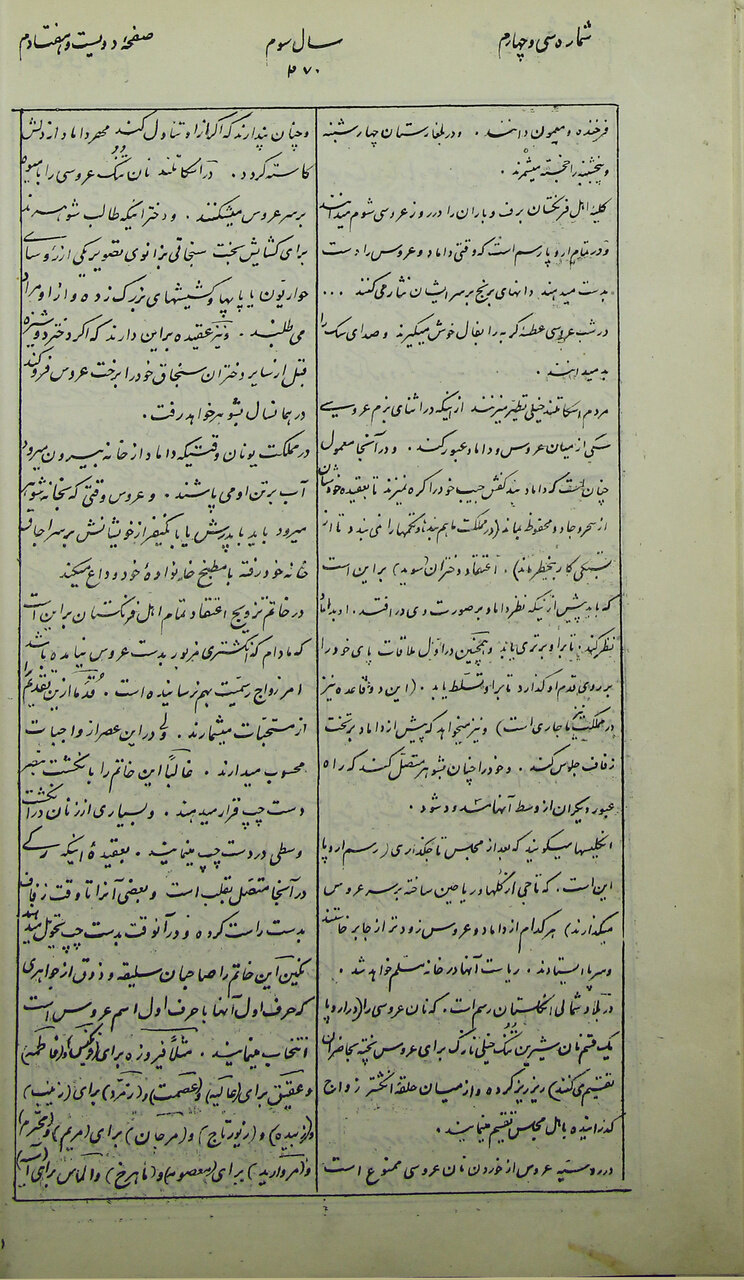 شماره سی و چهارم
سال سوم
صفحهٔ دویست و هفتادم
۲۷۰
فرخنده و میمون دانند . و در بلغارستان چهارشنبه
و پنجشنبه را خجسته میشمرند .
کلیهٔ اهل فرنگستان برف و باران را در روز عروسی شوم میدانند
و در تمام اروپا رسم است که وقتی داماد و عروس را دست
بدست میدهند دانهای برنج بر سر ایشان نثار می کنند ...
در شب عروسی عطسهٔ گربه را بفال خوش میگیرند و صدای سگ را
بد میدانند .
مردم اسکاتلند خیلی تطیر میزنند از اینکه در اثنای بزم عروسی
سگی از میان عروس و داماد عبور کند . و در آنجا معمول
چنان است که داماد بند کفش چپ خود را گره نمیزند تا بعقیدهٔ خودشان
از سحر و جادو محفوظ بماند (در مملکت ما هم بند و تکمها را نمی بندد تا از
بستگی کار بی خطر ماند) . اعتقاد دختران (سوید) بر این است
که باید پیش از آنیکه نظر داماد بر صورت وی در افتد . او بداماد
نظر کند . تا بر او برتری یابد و همچنین در اول ملاقات پای خود را
بر روی قدم او گذارد تا بر او تسلط یابد . (این دو قاعده نیز
در مملکت ما جاری است) و نیز میخواهد که پیش از داماد بر تخت
زفاف جلوس کند . و خود را چنان بشوهر متصل کند که راه
عبور دیگران از وسط آنها مسدود شود .
انگلیسها میگویند که بعد از مجلس تاجگذاری (رسم اروپا
این است . که تاجی از گلها و ریاحین ساخته بر سر عروس
میگذارند) هر کدام از داماد و عروس زودتر از جا بر خاستند
و سرپا ایستادند . ریاست آنها در خانه مسلم خواهد شد .
در بلاد شمالی انگلستان رسم است . که نان عروسی را (در اروپا
یک قسم نان شیرین تنک خیلی نازک برای عروس پخته بحاضران
تقسیم می کنند) ریز ریز کرده و از میان حلقهٔ انگشتر زواج
گذرانیده باهل مجلس تقسیم مینمایند .
در روسیه عروس از خوردن نان عروسی ممنوع است
و چنان پندارند که اگر از او تناول کند مهر داماد از دلش
کاسته گردد . در اسکاتلند نان تنک عروسی را با میوه
بر سر عروس میشکنند . و دخترانیکه طالب شوهرند
برای گشایش بخت سنجاقی بزانوی تصویر یکی از رؤسای
حواریون یا پاپها و کشیشهای بزرگ زده و از او مراد
می طلبند . و نیز عقیده بر این دارند که اگر دختر دوشیزه
قبل از سایر دختران سنجاق خود را برخت عروس فرو کند
در همانسال بشوهر خواهد رفت .
در مملکت یونان وقتیکه داماد از خانه بیرون میرود
آب بر تن او می پاشند . و عروس وقتی که بخانهٔ شوهر
میرود باید با پدرش یا با یکنفر از خویشانش بر سر اجاق
خانهٔ خود رفته با مطبخ خانوادهٔ خود وداع میکند
در خاتم تزویج اعتقاد تمام اهل فرنگستان بر این است
که مادام که انگشتری مزبور بدست عروس نیامده باشد
امر زواج رسمیت بهم نرسانیده است . قدما این تقدیم را
از مستحبات میشمارند . ولی در این عصر از واجبات
محسوب میدارند . غالباً این خاتم را بانگشت بنصر
دست چپ قرار میدهند . و بسیاری از زنان در انگشت
وسطی در دست چپ مینمایند . بعقیدهٔ اینکه رگی
در آنجا متصل بقلب است و بعضی آنرا تا وقت زفاف
بدست راست کرده و در آنوقت بدست چپ تحویل میدهند
نگین این خاتم را صاحبان سلیقه و ذوق از جواهری
که حرف اول آنها با حرف اول اسم عروس است
انتخاب مینمایند . مثلاً فیروزه برای (فرنگیس) و (فاطمه)
و عقیق برای (عالیه) و (عصمت) و (زمرد) برای (زینب)
و (زبیده) و (زیورتاج) و (مرجان) برای (مریم) و (محترم)
و (مروارید) برای (معصومه) و (ماهرخ) و الماس برای